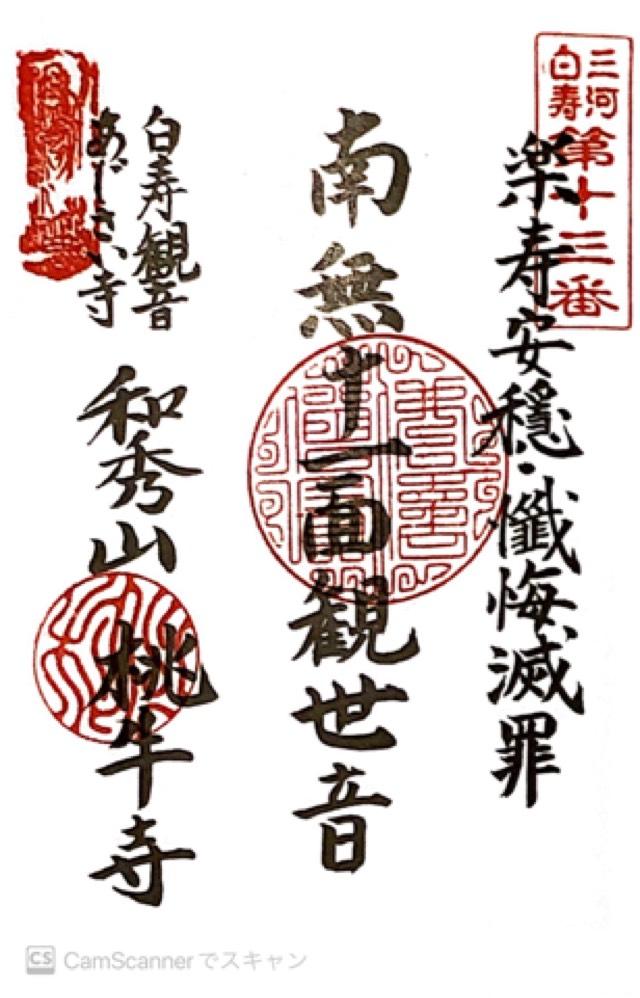 三河
白寿
第十三番
楽寿安穏・懺悔滅罪
南無十一面観世音
白寿観音
あじさい寺
和秀山 桃牛寺
CS CamScannerでスキャン